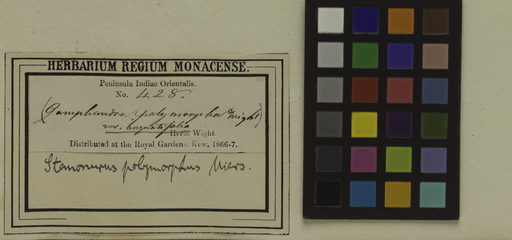 HERBARIUM REGIUM MONACENSE.
Peninsula Indiae Orientalis.
No. 428.
(Gomphandra polymorpha Wight)
var. angustifolia
Herb. Wight.
Distributed at the Royal Gardens, Kew, 1866-7.
Stemonurus polymorphus Miers.